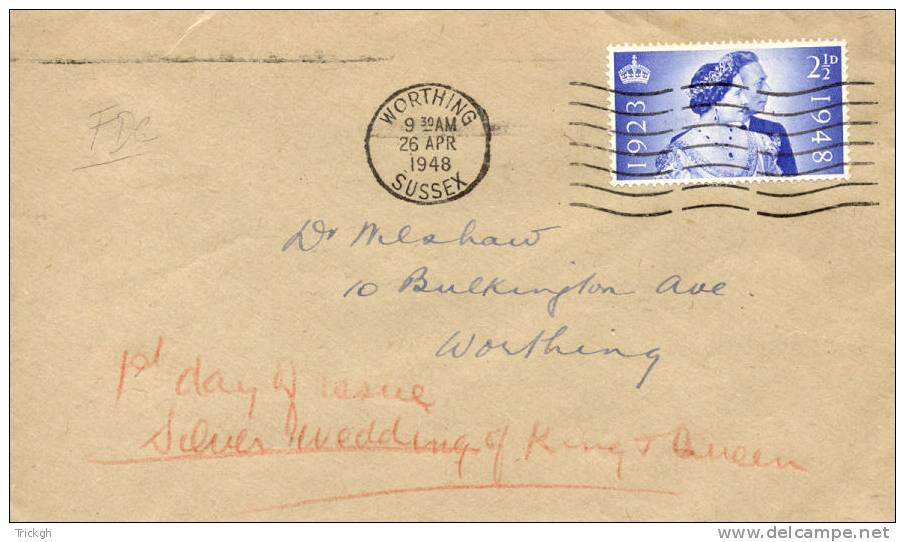 FDC
WORTHING
9 30 AM
26 APR
1948
SUSSEX
2½D
1923
1948
Dr Wilshaw
10 Bulkington Ave
Worthing
1st day of issue
Silver Wedding of King & Queen
Trickgh
www.delcampe.net